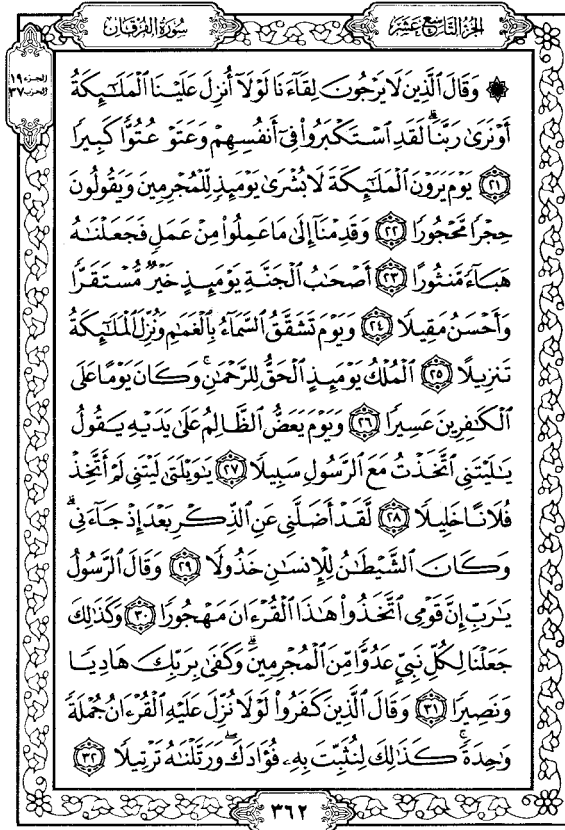 سُورَةُ الفُرْقَان
الجُزْءُ التَّاسِعَ عَشَر
الجزء ١٩
الحزب ٣٧
۞ وَقَالَ ٱلَّذِينَ لَا يَرْجُونَ لِقَآءَنَا لَوْلَآ أُنزِلَ عَلَيْنَا ٱلْمَلَٰٓئِكَةُ
أَوْ نَرَىٰ رَبَّنَا ۗ لَقَدِ ٱسْتَكْبَرُوا۟ فِىٓ أَنفُسِهِمْ وَعَتَوْ عُتُوًّا كَبِيرًا
﴿٢١﴾ يَوْمَ يَرَوْنَ ٱلْمَلَٰٓئِكَةَ لَا بُشْرَىٰ يَوْمَئِذٍ لِّلْمُجْرِمِينَ وَيَقُولُونَ
حِجْرًا مَّحْجُورًا ﴿٢٢﴾ وَقَدِمْنَآ إِلَىٰ مَا عَمِلُوا۟ مِنْ عَمَلٍ فَجَعَلْنَٰهُ
هَبَآءً مَّنثُورًا ﴿٢٣﴾ أَصْحَٰبُ ٱلْجَنَّةِ يَوْمَئِذٍ خَيْرٌ مُّسْتَقَرًّا
وَأَحْسَنُ مَقِيلًا ﴿٢٤﴾ وَيَوْمَ تَشَقَّقُ ٱلسَّمَآءُ بِٱلْغَمَٰمِ وَنُزِّلَ ٱلْمَلَٰٓئِكَةُ
تَنزِيلًا ﴿٢٥﴾ ٱلْمُلْكُ يَوْمَئِذٍ ٱلْحَقُّ لِلرَّحْمَٰنِ ۚ وَكَانَ يَوْمًا عَلَى
ٱلْكَٰفِرِينَ عَسِيرًا ﴿٢٦﴾ وَيَوْمَ يَعَضُّ ٱلظَّالِمُ عَلَىٰ يَدَيْهِ يَقُولُ
يَٰلَيْتَنِى ٱتَّخَذْتُ مَعَ ٱلرَّسُولِ سَبِيلًا ﴿٢٧﴾ يَٰوَيْلَتَىٰ لَيْتَنِى لَمْ أَتَّخِذْ
فُلَانًا خَلِيلًا ﴿٢٨﴾ لَّقَدْ أَضَلَّنِى عَنِ ٱلذِّكْرِ بَعْدَ إِذْ جَآءَنِى ۗ
وَكَانَ ٱلشَّيْطَٰنُ لِلْإِنسَٰنِ خَذُولًا ﴿٢٩﴾ وَقَالَ ٱلرَّسُولُ
يَٰرَبِّ إِنَّ قَوْمِى ٱتَّخَذُوا۟ هَٰذَا ٱلْقُرْءَانَ مَهْجُورًا ﴿٣٠﴾ وَكَذَٰلِكَ
جَعَلْنَا لِكُلِّ نَبِىٍّ عَدُوًّا مِّنَ ٱلْمُجْرِمِينَ ۗ وَكَفَىٰ بِرَبِّكَ هَادِيًا
وَنَصِيرًا ﴿٣١﴾ وَقَالَ ٱلَّذِينَ كَفَرُوا۟ لَوْلَا نُزِّلَ عَلَيْهِ ٱلْقُرْءَانُ جُمْلَةً
وَٰحِدَةً ۚ كَذَٰلِكَ لِنُثَبِّتَ بِهِۦ فُؤَادَكَ ۖ وَرَتَّلْنَٰهُ تَرْتِيلًا ﴿٣٢﴾
٣٦٢